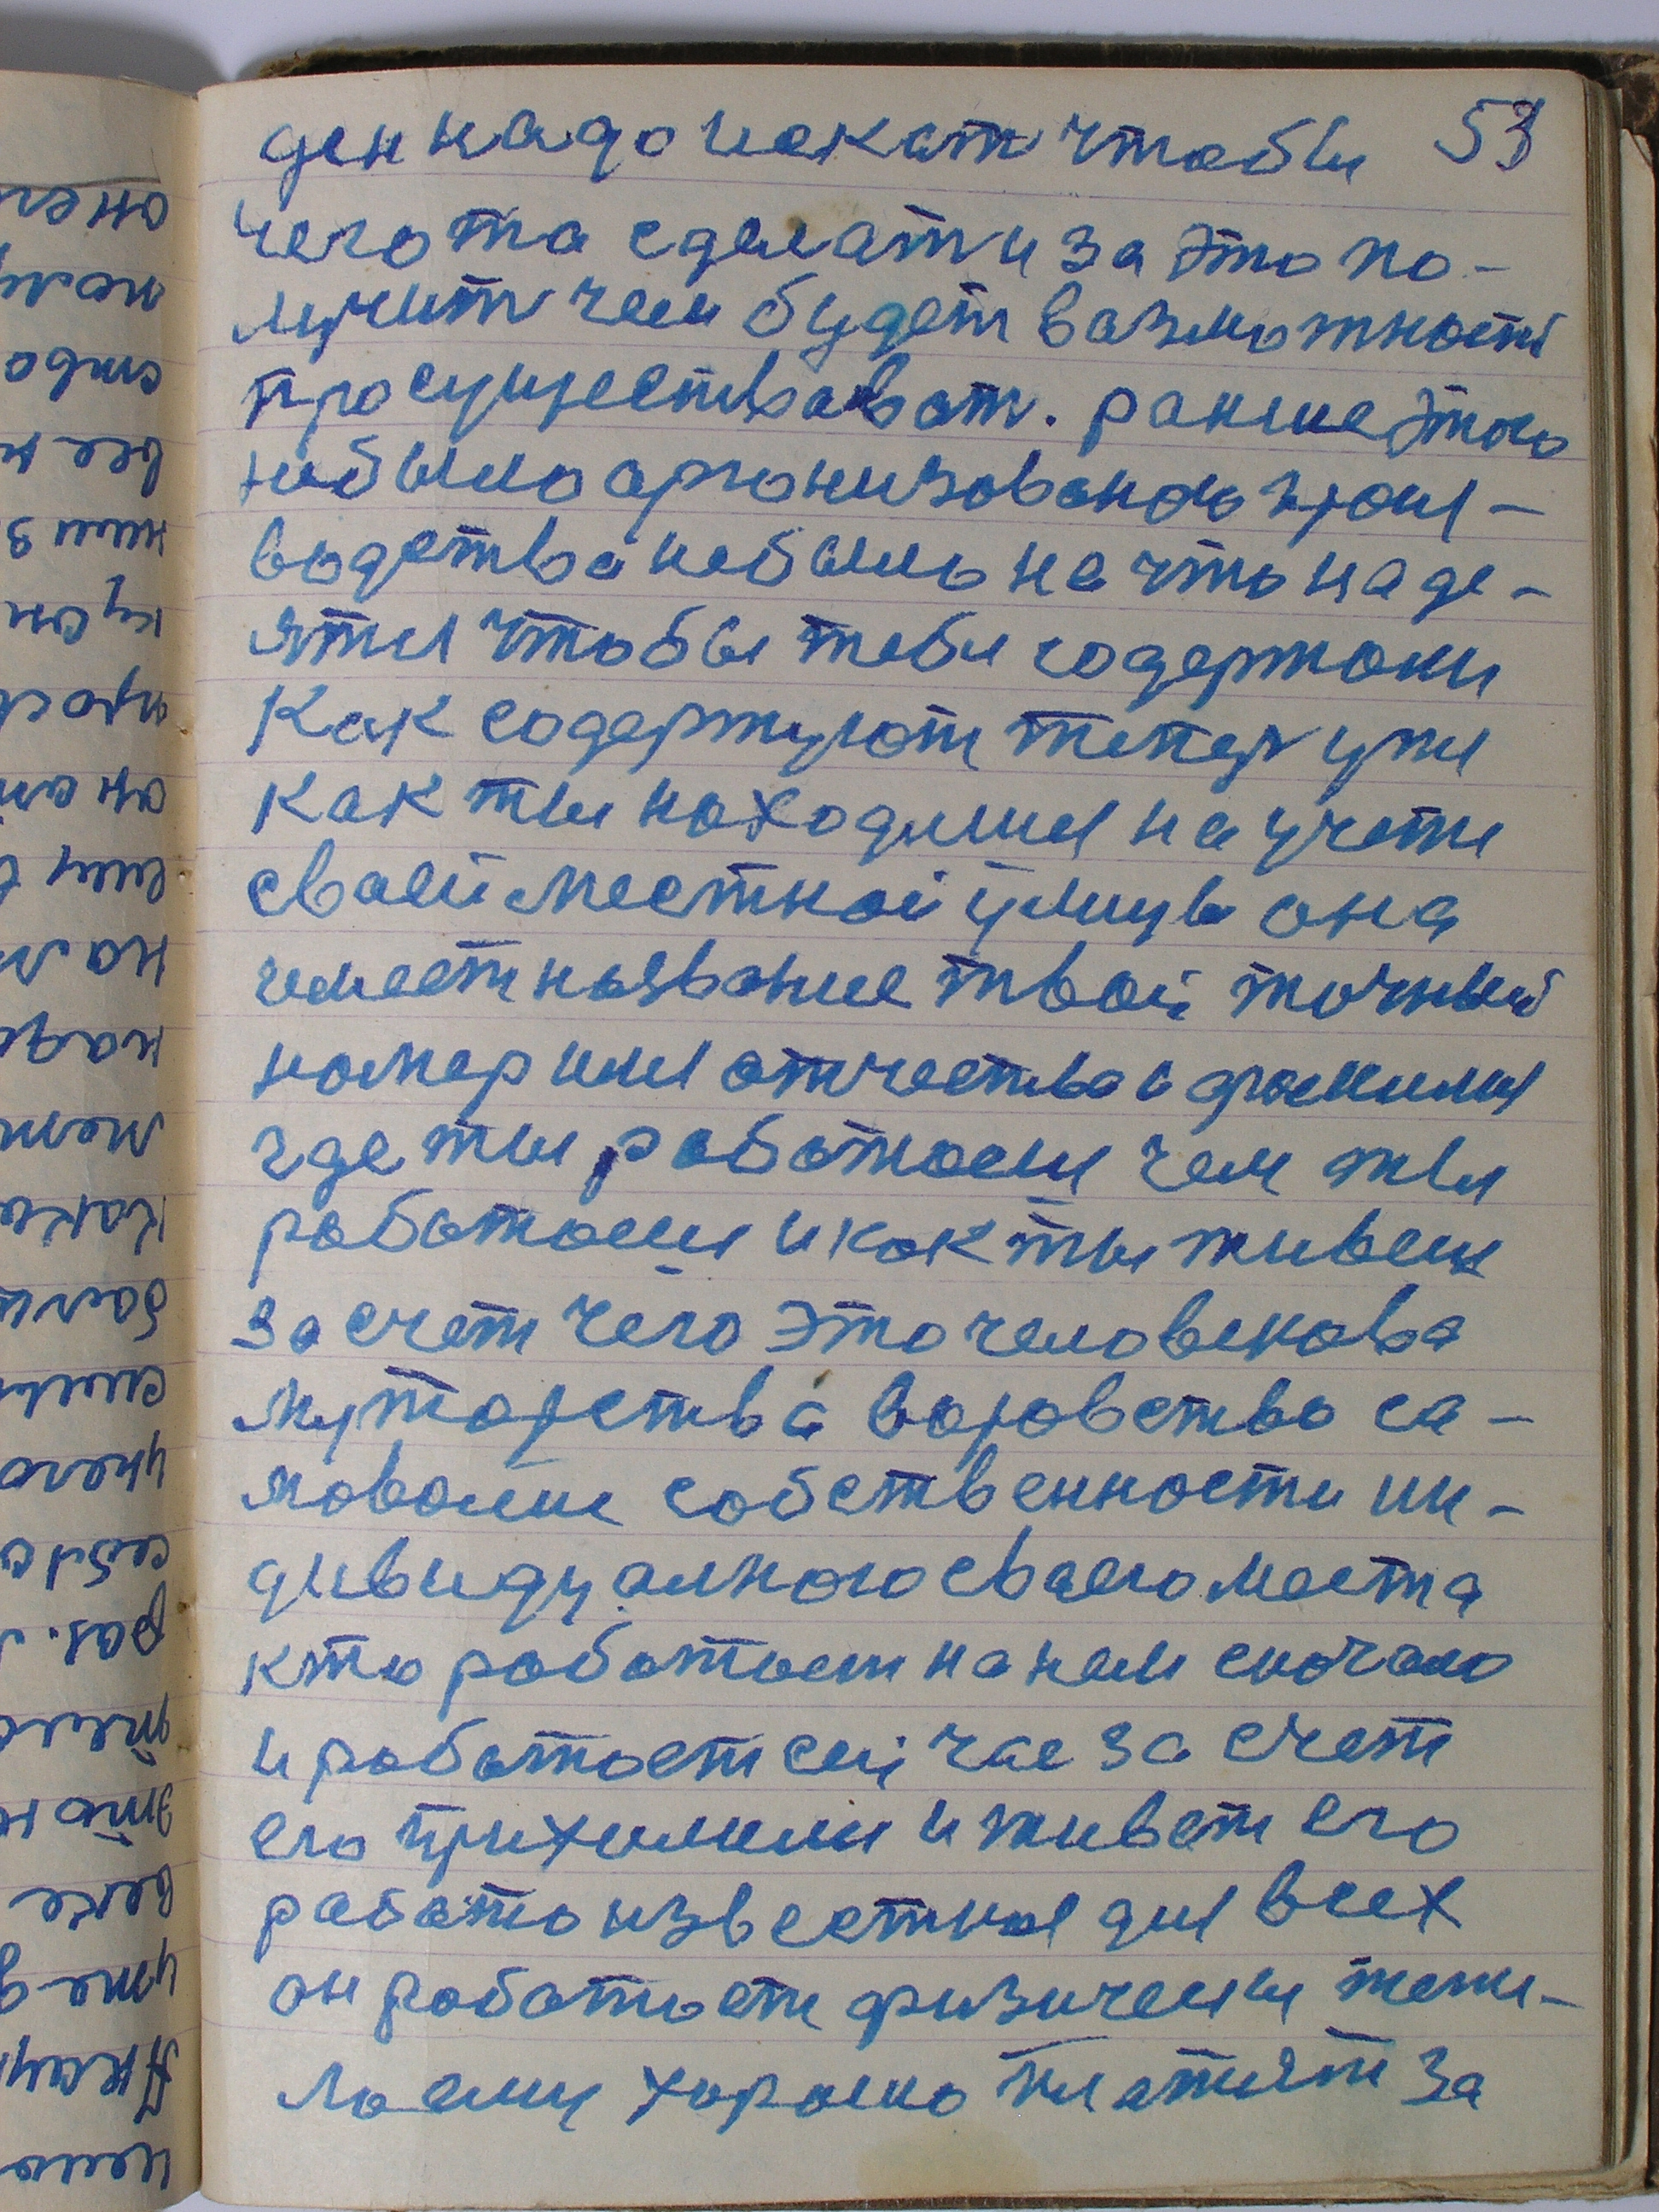 ден надо искат чтобы 53
чего та сделат и за это по-
лучит чем будет вазможност
просуществават. ранше этого
небыло арганизовано прои-
водства небыло на что наде-
ятся чтобы тебя содержали
Как содержуют тепер уже
как ты находишся на учете
сваей местной улицы она
имеет название твой точный
номер имя отчества и фамилия
где ты работаеш чем ты
работаеш и как ты живеш
за счет чего это человекова
мутарства воровство са-
моволие собственности ин-
дивидуалного сваего места
кто работает на нем сначало
и работает сейчас за счет
его прихилили и живет его
работа известная для всех
он работает физически тяжи-
ло ему хорошо платят за